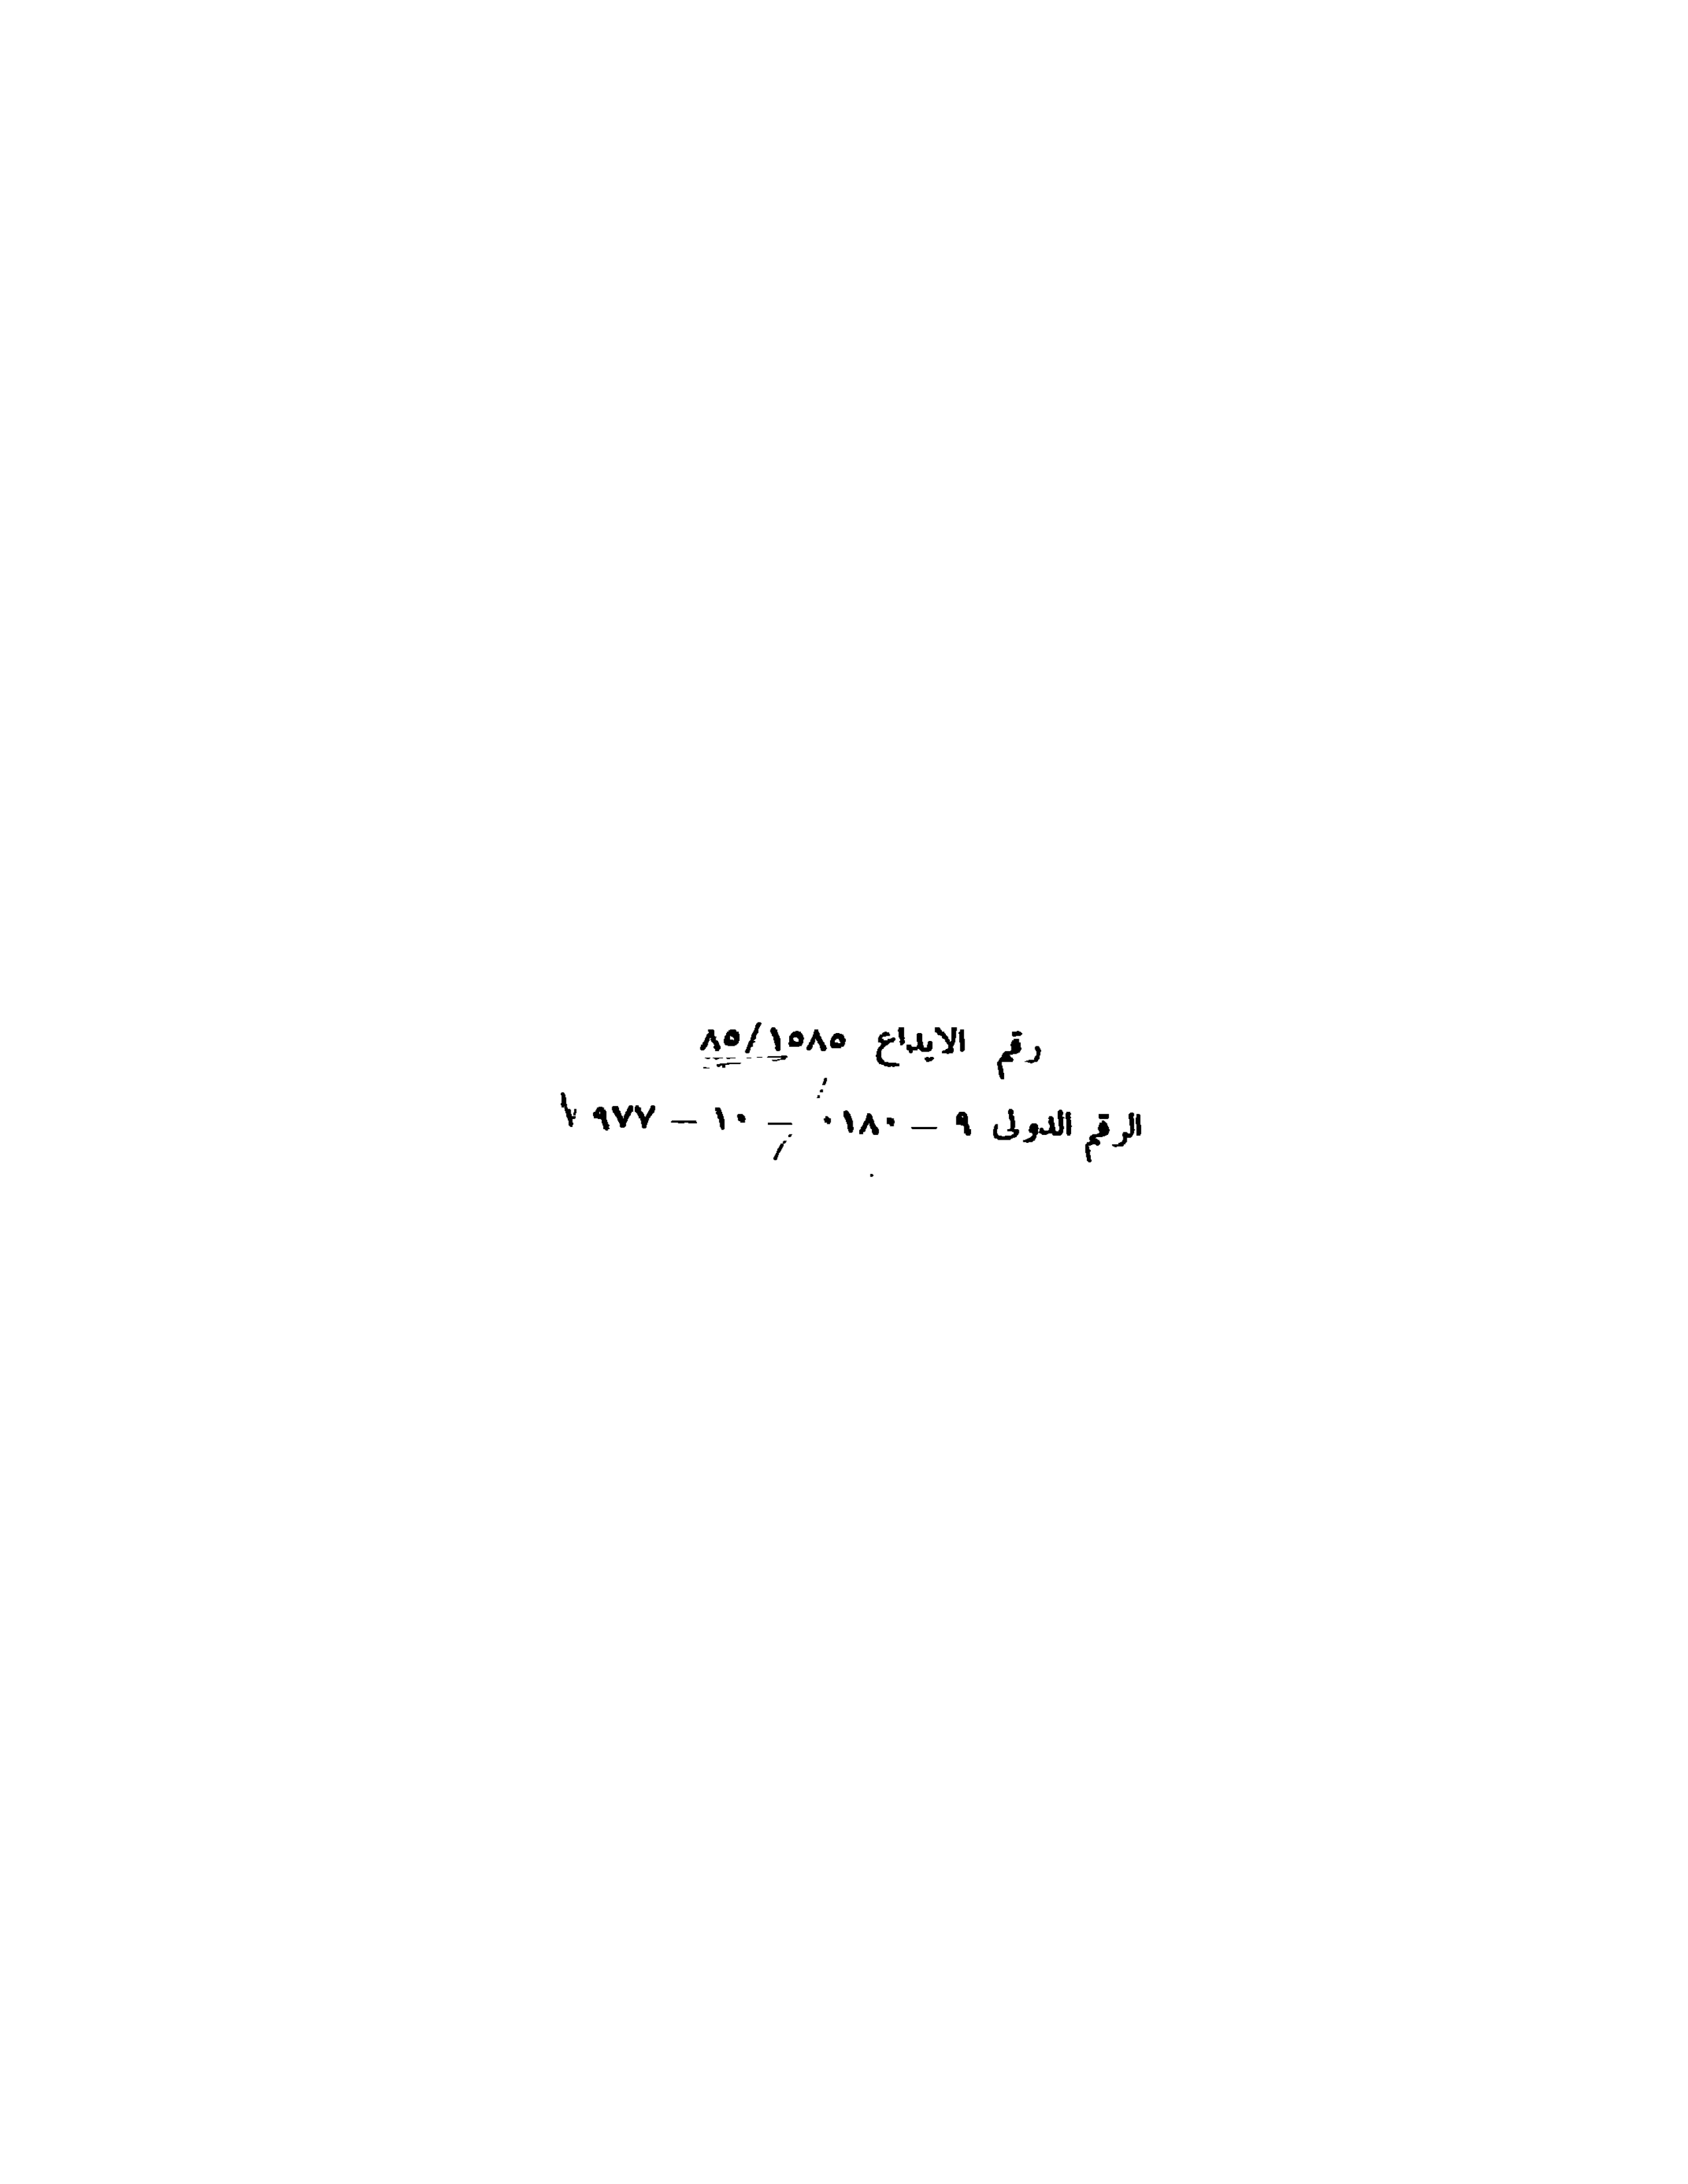 رقم الايداع ٨٥/١٥٨٥
الرقم الدولى ٩ – ٠١٨٠ – ١٠ – ٩٧٧